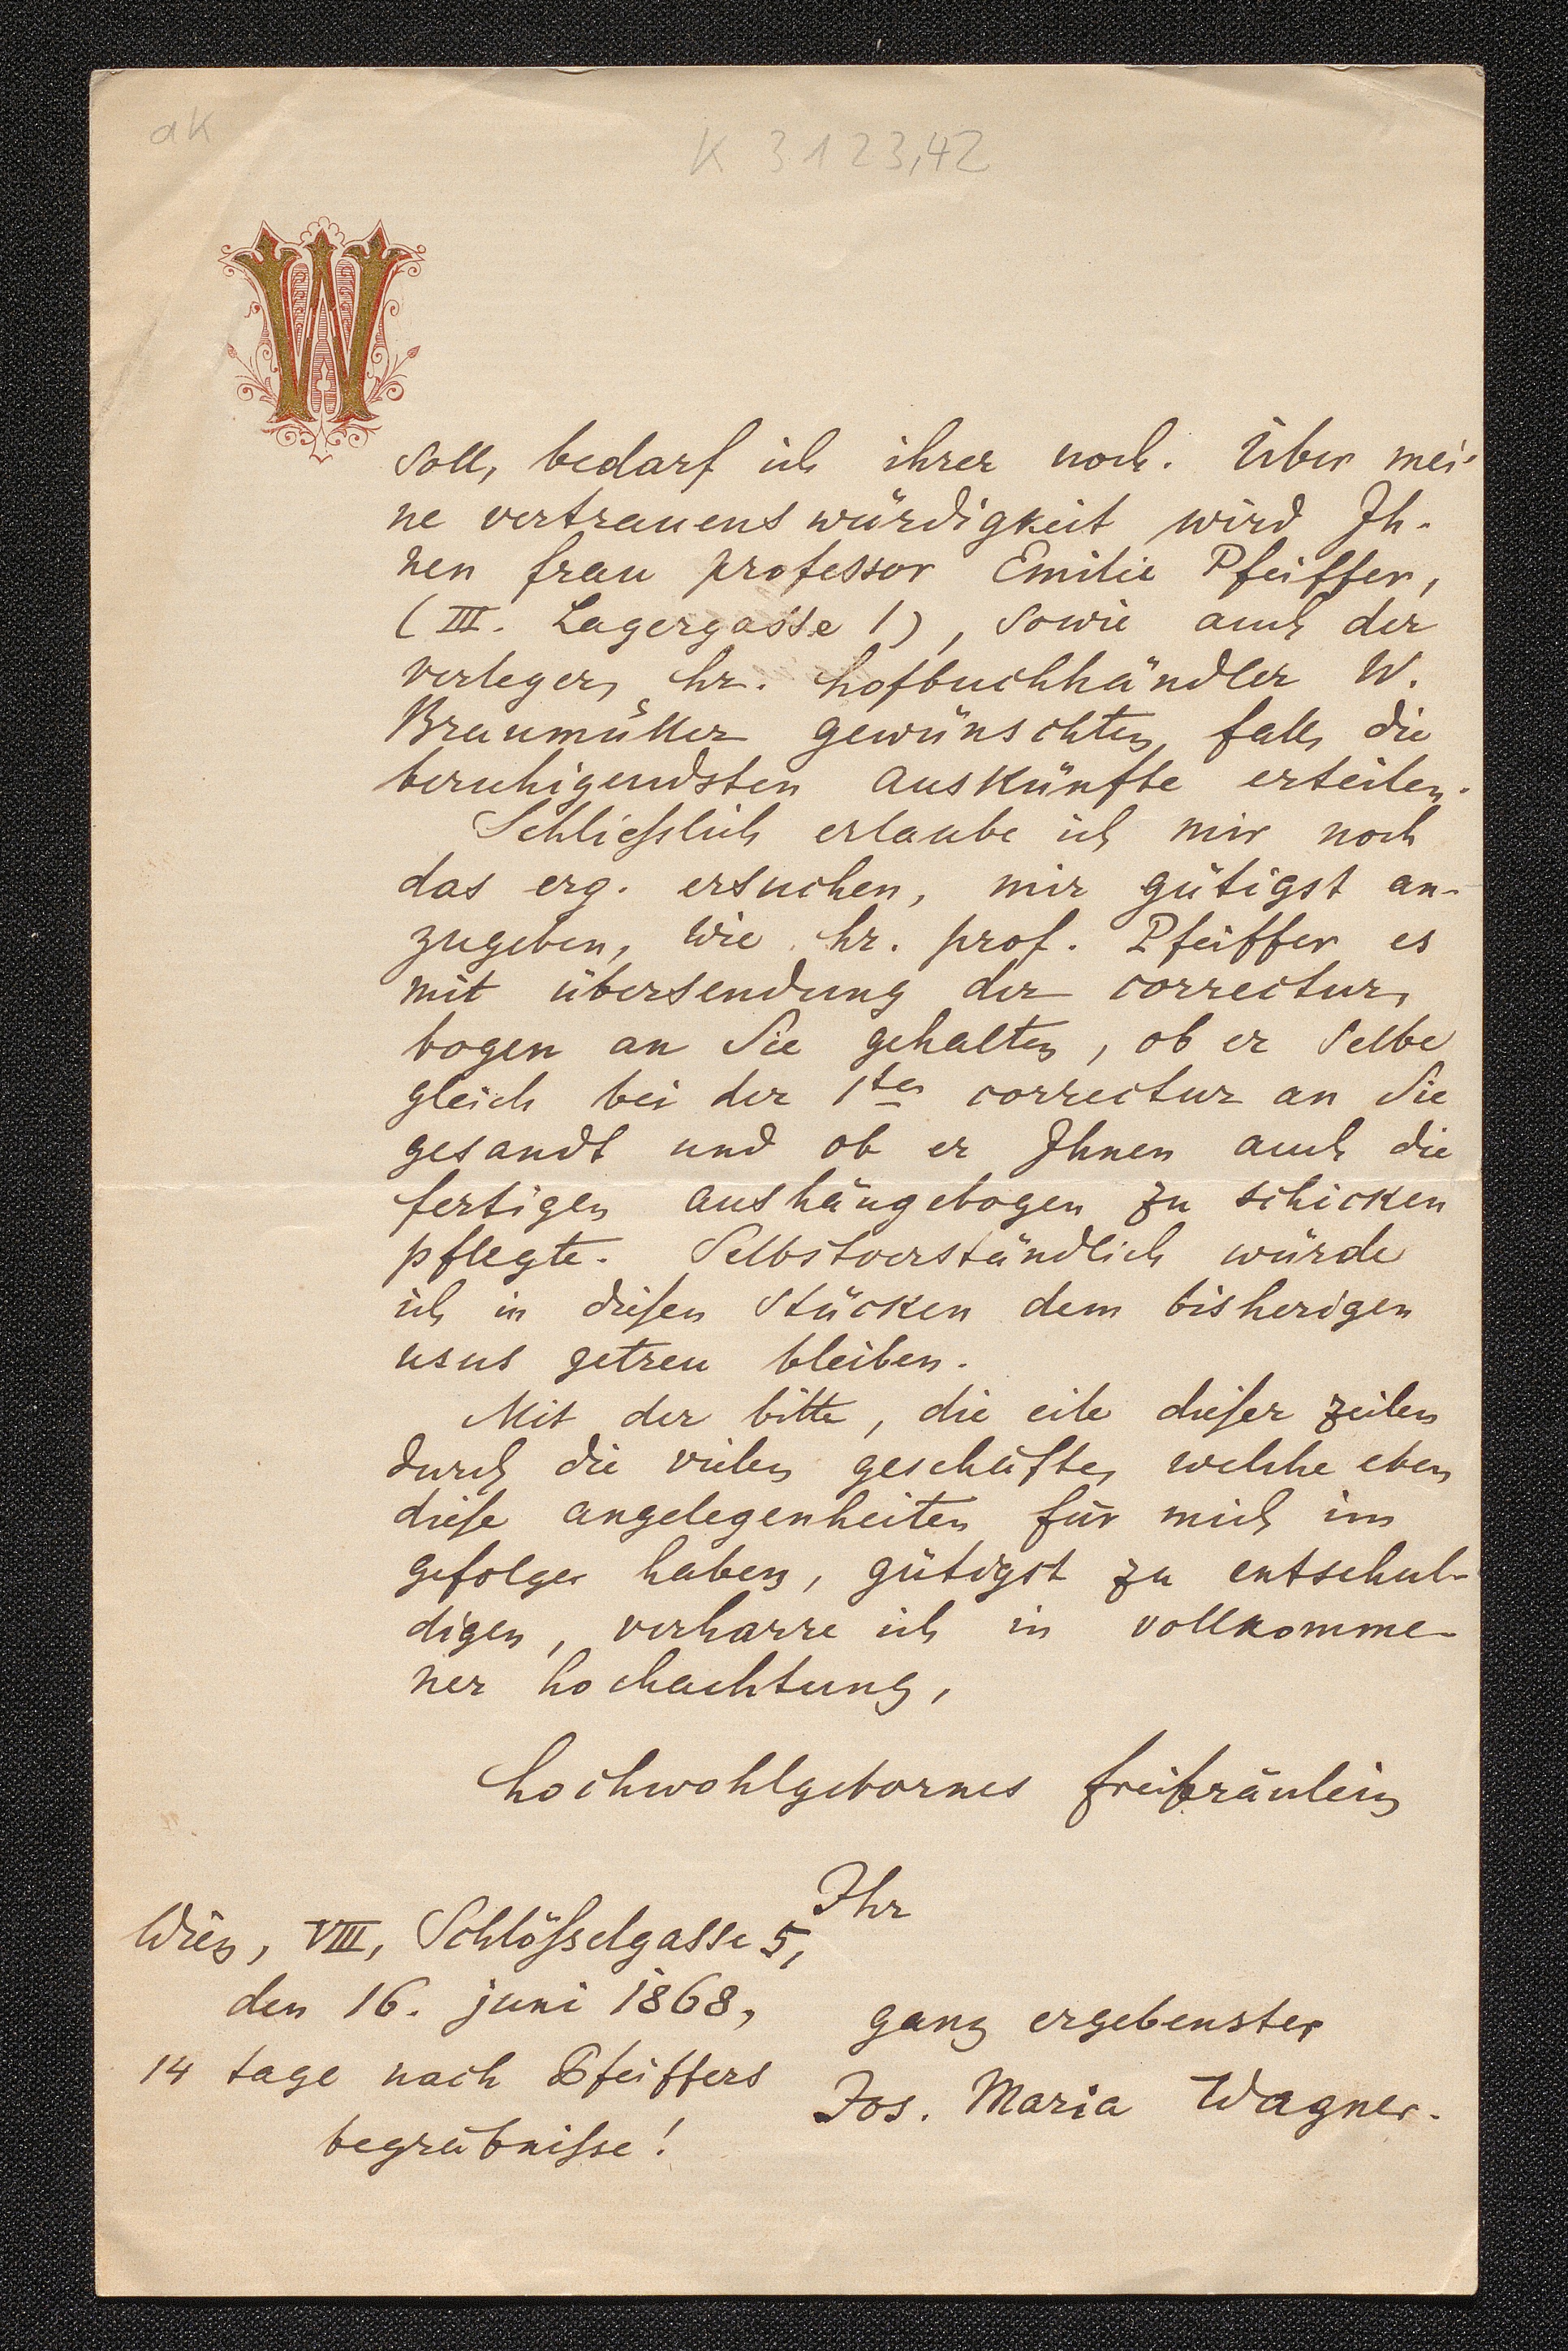 ak
K 3123,42
W
soll, bedarf ich ihrer noch. Über mei-
ne vertrauenswürdigkeit wird Ih-
nen frau professor Emilie Pfeiffer,
(III. Lagergasse 1), sowie auch der
verleger, hr. hofbuchhändler W.
Braumüller gewünschten falls die
beruhigendsten auskünfte erteilen.
Schließlich erlaube ich mir noch
das erg. ersuchen, mir gütigst an-
zugeben, wie hr. prof. Pfeiffer es
mit übersendung der correctur,
bogen an Sie gehalten, ob er selbe
gleich bei der 1ten correctur an Sie
gesandt und ob er Ihnen auch die
fertigen aushängebogen zu schicken
pflegte. Selbstverständlich würde
ich in diesen stücken dem bisherigen
usus getreu bleiben.
Mit der bitte, die eile dieser zeilen
durch die vielen geschäfte, welche eben
diese angelegenheiten für mich im
gefolge haben, gütigst zu entschul-
digen, verharre ich in vollkomme-
ner hochachtung,
hochwohlgebornes freifräulein
Ihr
Wien, VIII, Schlösselgasse 5,
den 16. juni 1868,
ganz ergebenster
14 tage nach Pfeiffers
Jos. Maria Wagner.
begräbnisse!